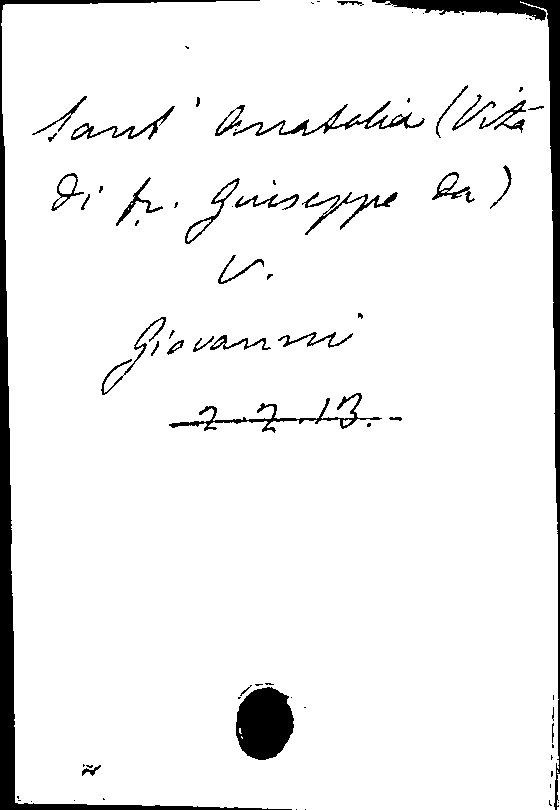 Sant' Anatolia (Vita
di fr. Giuseppe da)
V.
Giovanni
2.2.13.